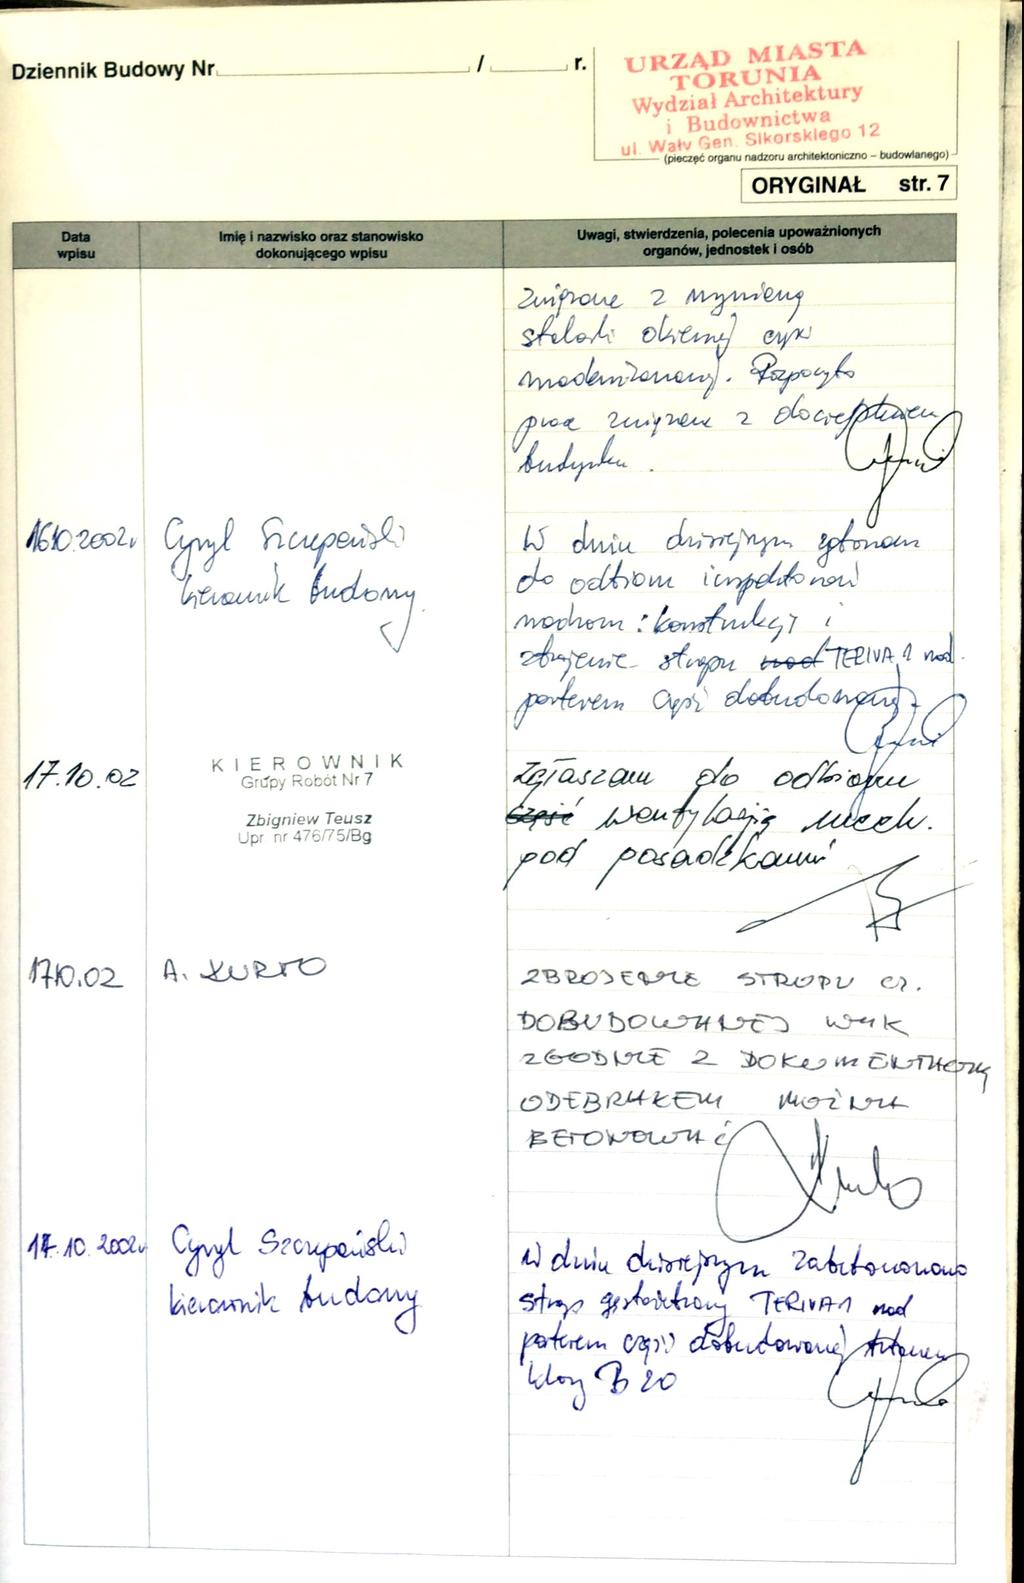 Dziennik Budowy Nr / r.
URZĄD MIASTA
TORUNIA
Wydział Architektury
i Budownictwa
ul. Wały Gen. Sikorskiego 12
(pieczęć organu nadzoru architektoniczno – budowlanego)
ORYGINAŁ str. 7
Data
wpisu
Imię i nazwisko oraz stanowisko
dokonującego wpisu
Uwagi, stwierdzenia, polecenia upoważnionych
organów, jednostek i osób
związane z wymianą
stolarki okiennej części
modernizowanej. Rozpoczęto
prace związane z dociepleniem
budynku.
16.10.2002r
Cyryl Szczepański
kierownik budowy
W dniu dzisiejszym zgłoszono
do odbioru inspektorowi
nadzoru: konstrukcję i
zbrojenie stropu nad TERIVA 1 nad
parterem części dobudowanej.
17.10.02
KIEROWNIK
Grupy Robót Nr 7
Zbigniew Teusz
Upr nr 476/75/Bg
Zgłaszam do odbioru
część wentylację mech.
pod posadzkami
17.10.02
A. KURTO
ZBROJENIE STROPU CZ.
DOBUDOWANEJ WYK
ZGODNIE Z DOKUMENTACJĄ
ODEBRAŁEM MOŻNA
BETONOWAĆ
17.10.2002r
Cyryl Szczepański
kierownik budowy
W dniu dzisiejszym zabetonowano
strop gęstożebrowy TERIVA 1 nad
parterem części dobudowanej betonem
klasy B 20